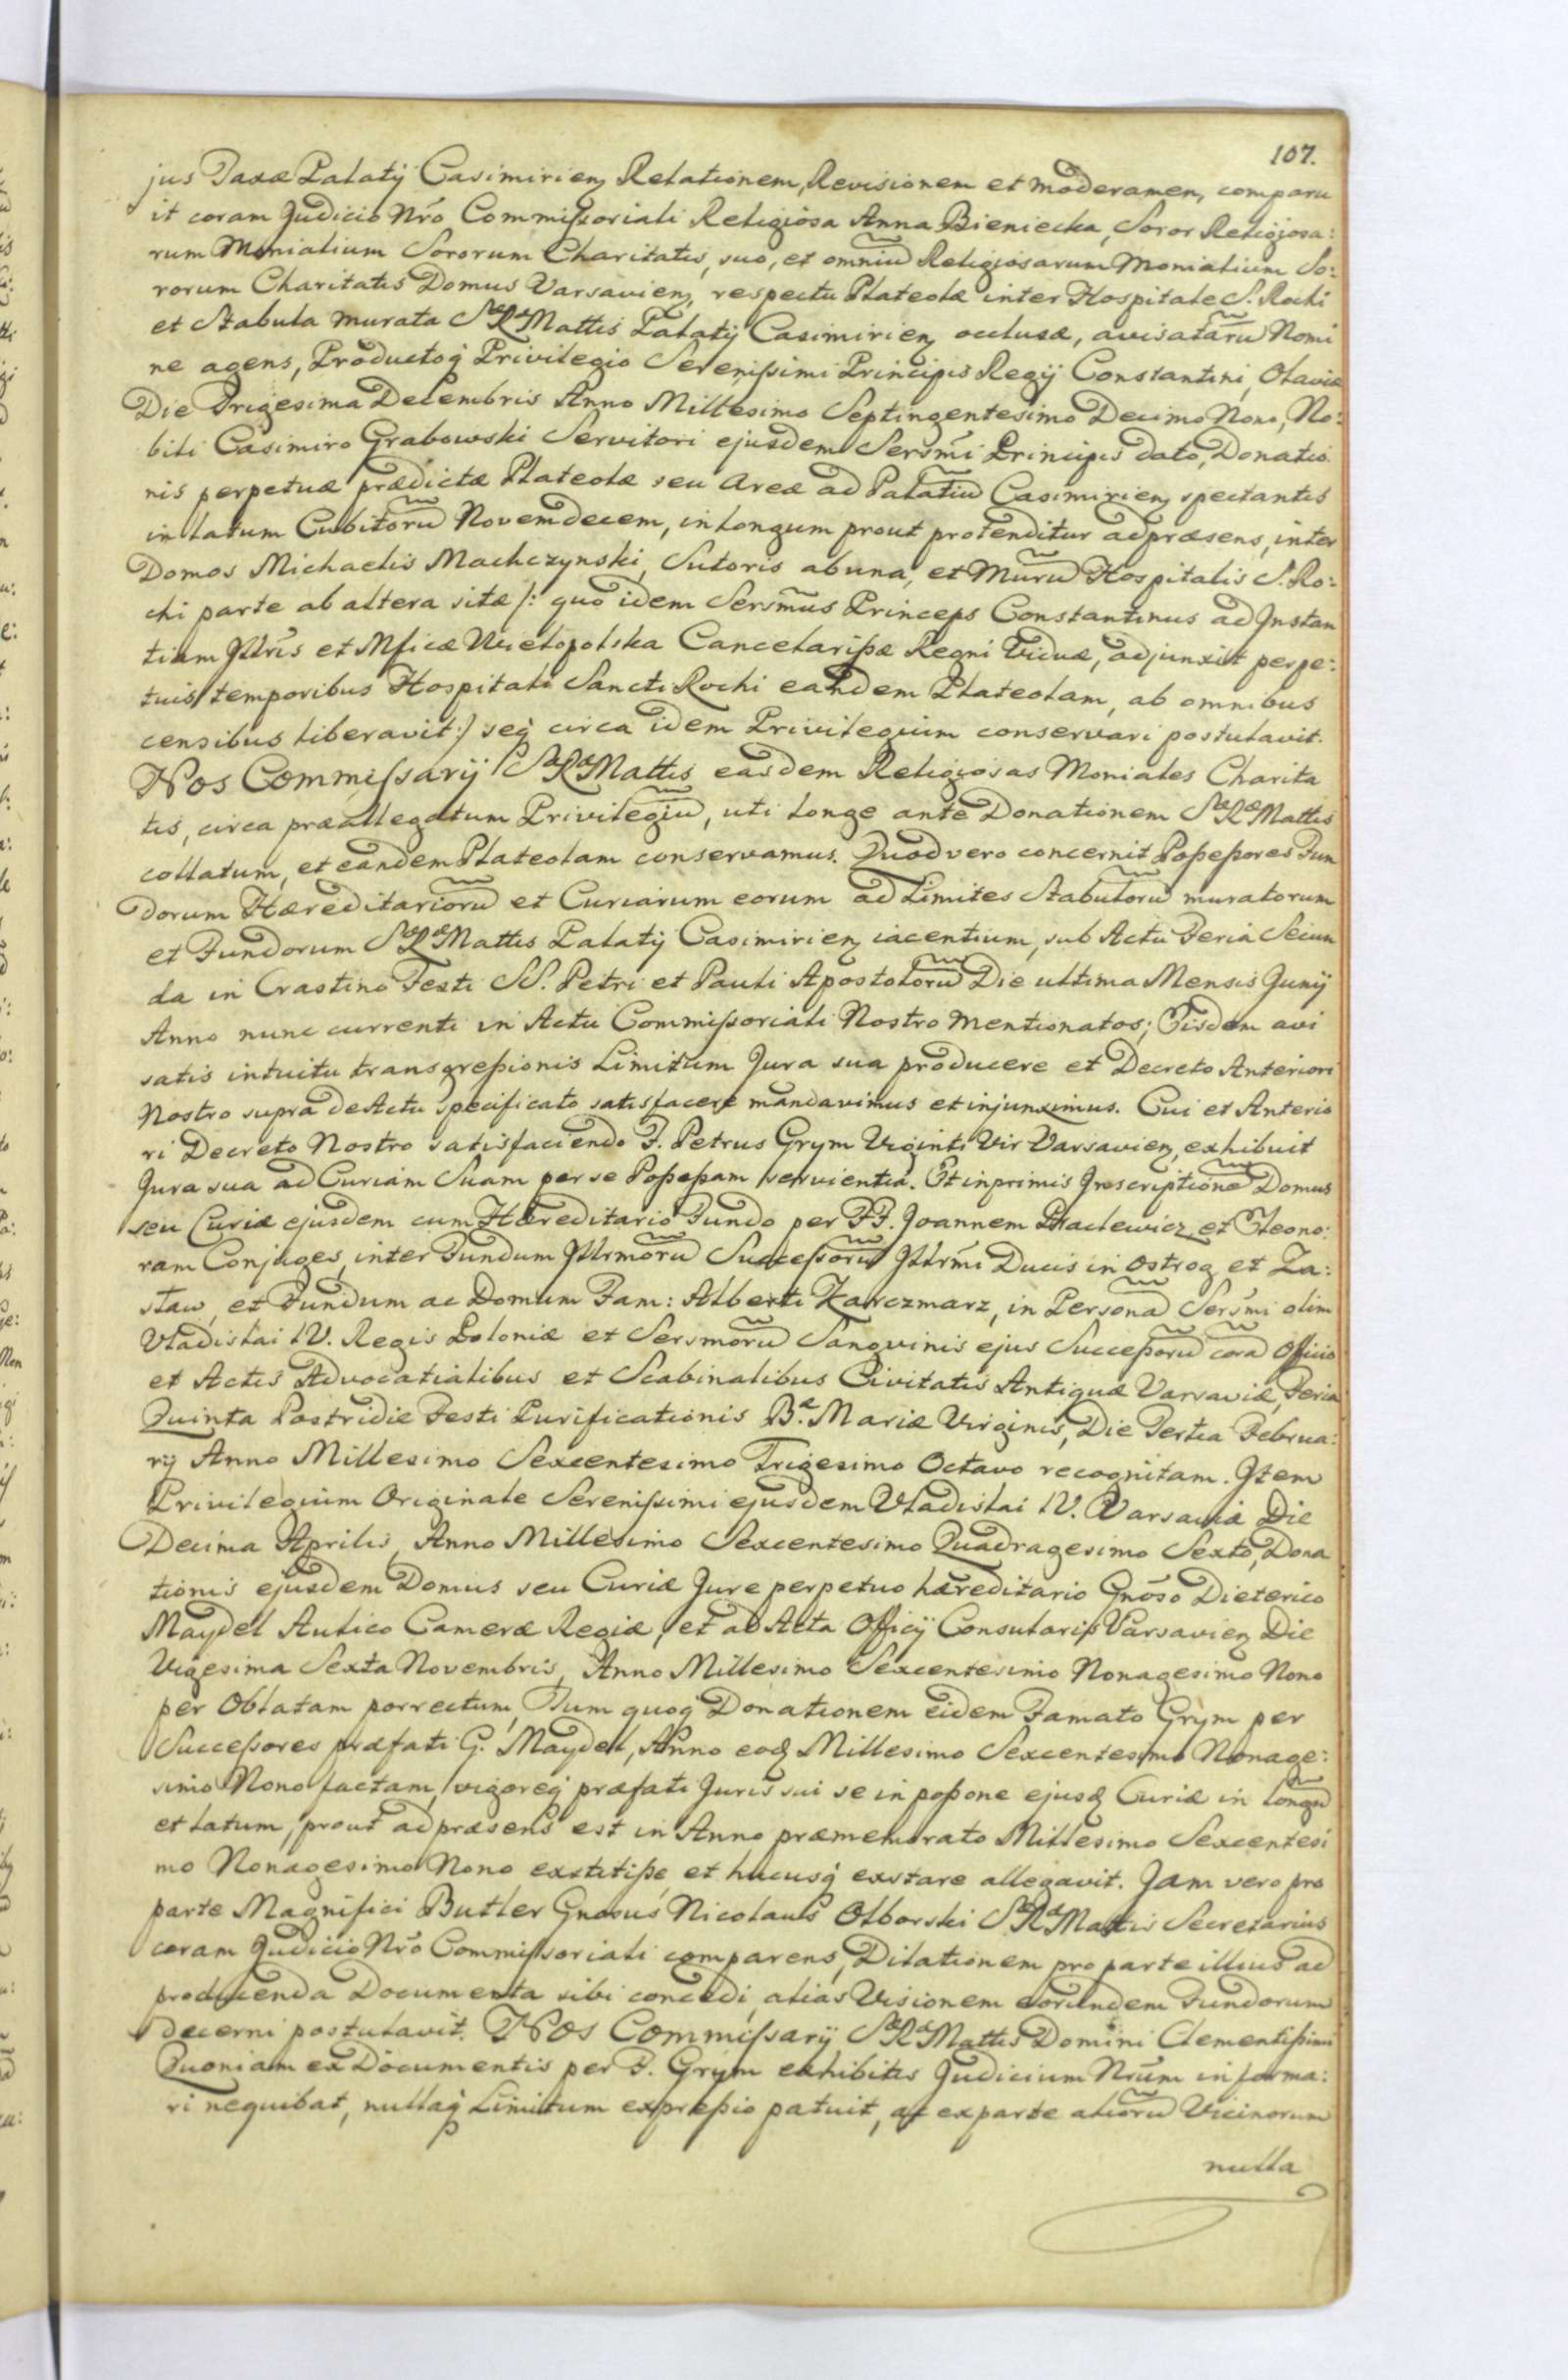 107.
jus Taxæ Palatij Casimirien, Relationem, Revisionem et moderamen, comparu
it coram Judicio Nr̃o Commissoriali Religiosa Anna Bieniecka, Soror Religiosa:
rum Monialium Sororum Charitatis, suo, et omniũ Religiosarum Monialium So:
rorum Charitatis Domus Varsavien, respectu Plateolæ inter Hospitale S. Rochi
et Stabula murata SæRæ Mattis Palatij Casimirien, occlusæ, avisatarũ Nomi
ne agens, Productoq Privilegio Serenissimi Principis Regij Constantini, Olaviæ
Die Trigesima Decembris Anno Millesimo Septingentesimo Decimo Nono, No:
bili Casimiro Grabowski Servitori ejusdem Sersm̃i Principis dato, Donatio
nis perpetuæ prædictæ Plateolæ seu Areæ ad Palatiũ Casimirien, spectantis
in latum Cubitorũ Novemdecem, in longum prout protenditur ad præsens, inter
Domos Michaelis Machczynski, Sutoris ab una, et Murũ Hospitalis S. Ro:
chi parte ab altera sitæ /: quo idem Sersm̃us Princeps Constantinus ad Instan
tiam Jll̃ris et Mficæ Wielopolska Cancelarissæ Regni Viduæ, adjunxit perpe:
tuis temporibus Hospitali Sancti Rochi eandem Plateolam, ab omnibus
censibus liberavit :/ seq circa idem Privilegium conservari postulavit.
Nos Commissarij SæRæ Mattis easdem Religiosas Moniales Charita
tis, circa præallegatum Privilegiũ, uti longe ante Donationem SæRæ Mattis
collatum, et eandem Plateolam conservamus. Quod vero concernit Possessores Fun
dorum Hæreditariorũ et Curiarum eorum ad Limites Stabulorũ muratorum
et Fundorum SæRæ Mattis Palatij Casimirien, iacentium, sub Actu Feria Secun
da in Crastino Festi SS. Petri et Pauli Apostolorũ Die ultima Mensis Junij
Anno nunc currenti in Actu Commissoriali Nostro mentionatos; Eisdem avi
satis intuitu transgressionis Limitum Jura sua producere et Decreto Anteriori
Nostro supra de Actu specificato satisfacere mandavimus et injunximus. Cui et Anterio
ri Decreto Nostro satisfaciendo F. Petrus Grym Viginti Vir Varsavien, exhibuit
Jura sua ad Curiam Suam per se Possessam servientia. Et inprimis Inscriptionẽ Domus
seu Curiæ ejusdem cum Hæreditario Fundo per FF. Joannem et Eleono:
ram Conjuges, inter Fundum Jllrmorũ Successorũ Jllrm̃i Ducis in Ostrog et Za:
sław, et Fundum ac Domum Fam: Alberti Karczmarz, in Personã Sersm̃i olim
Vladislai IV. Regis Poloniæ et Sersmorũ Sanguinis ejus Successorũ corã Officio
et Actis Advocatialibus et Scabinalibus Civitatis Antiquæ Varsaviæ, Feria
Quinta Postridie Festi Purificationis B.æ Mariæ Virginis, Die Tertia Februa:
rij Anno Millesimo Sexcentesimo Trigesimo Octavo recognitam. Item
Privilegium Originale Serenissimi ejusdem Vladislai IV. Varsaviæ Die
Decima Aprilis, Anno Millesimo Sexcentesimo Quadragesimo Sexto, Dona
tionis ejusdem Domus seu Curiæ Jure perpetuo hæreditario Gnõso Dieterico
Maydel Aulico Cameræ Regiæ, et ad Acta Officij Consularis Varsavien, Die
Vigesima Sexta Novembris, Anno Millesimo Sexcentesimo Nonagesimo Nono
per Oblatam porrectum, Tum quoq Donationem eidem Famato Grym per
Successores præfati G. Maydel, Anno eod Millesimo Sexcentesimo Nonage:
simo Nono factam, vigoreq præfati Juris sui se in possone ejusd Curiæ in longũ
et latum, prout ad præsens est in Anno præmemorato Millesimo Sexcentesi
mo Nonagesimo Nono extitisse, et hucusq exstare allegavit. Jam vero pro
parte Magnifici Butler Gnosus Nicolaus Olborski SæRæ Mattis Secretarius
coram Judicio Nr̃o Commissoriali comparens, Dilationem pro parte illius ad
producenda Documenta sibi concedi, alias Visionem eorundem Fundorum
decerni postulavit. Nos Commissarij SæRæ Mattis Domini Clementissimi
Quoniam ex Documentis per F. Grym exhibitis Judicium Nrũm informa:
ri nequibat, nullaq Limitum expressio patuit, at ex parte aliorũ Vicinorum
nulla